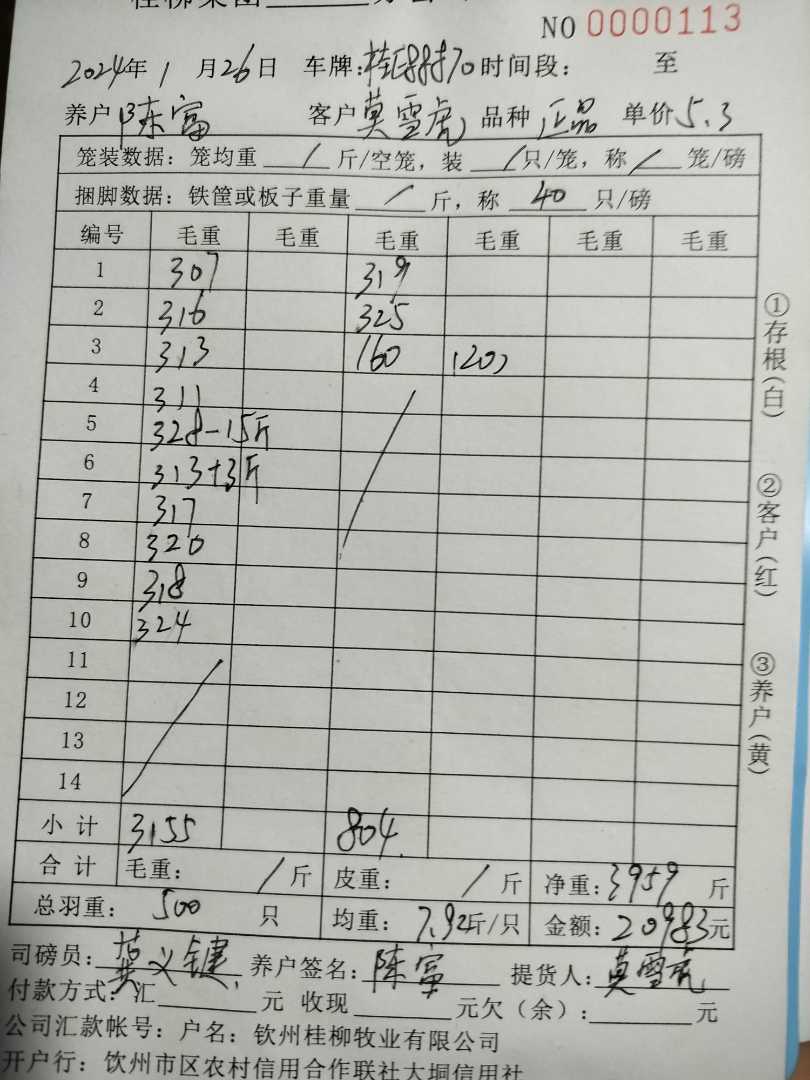 NO 0000113
2024年 1 月26日 车牌: 时间段: 至
养户 陈富 客户 莫雪虎 品种 正品 单价 5.3
笼装数据: 笼均重 / 斤/空笼, 装 / 只/笼, 称 / 笼/磅
捆脚数据: 铁筐或板子重量 / 斤, 称 40 只/磅
编号 毛重 毛重 毛重 毛重 毛重 毛重
1 307 319
2 316 325
3 313 160 (20)
4 311
5 328-15斤
6 313+3斤
7 317
8 320
9 318
10 324
11
12
13
14
小计 3155 804
合计 毛重: / 斤 皮重: / 斤 净重: 3959 斤
总羽重: 500 只 均重: 7.92斤/只 金额: 20983元
司磅员: 莫义键 养户签名: 陈富 提货人: 莫雪虎
付款方式: 汇 元 收现 元欠(余): 元
公司汇款帐号: 户名: 钦州桂柳牧业有限公司
开户行: 钦州市区农村信用合作联社大垌信用社
①存根(白)
②客户(红)
③养户(黄)